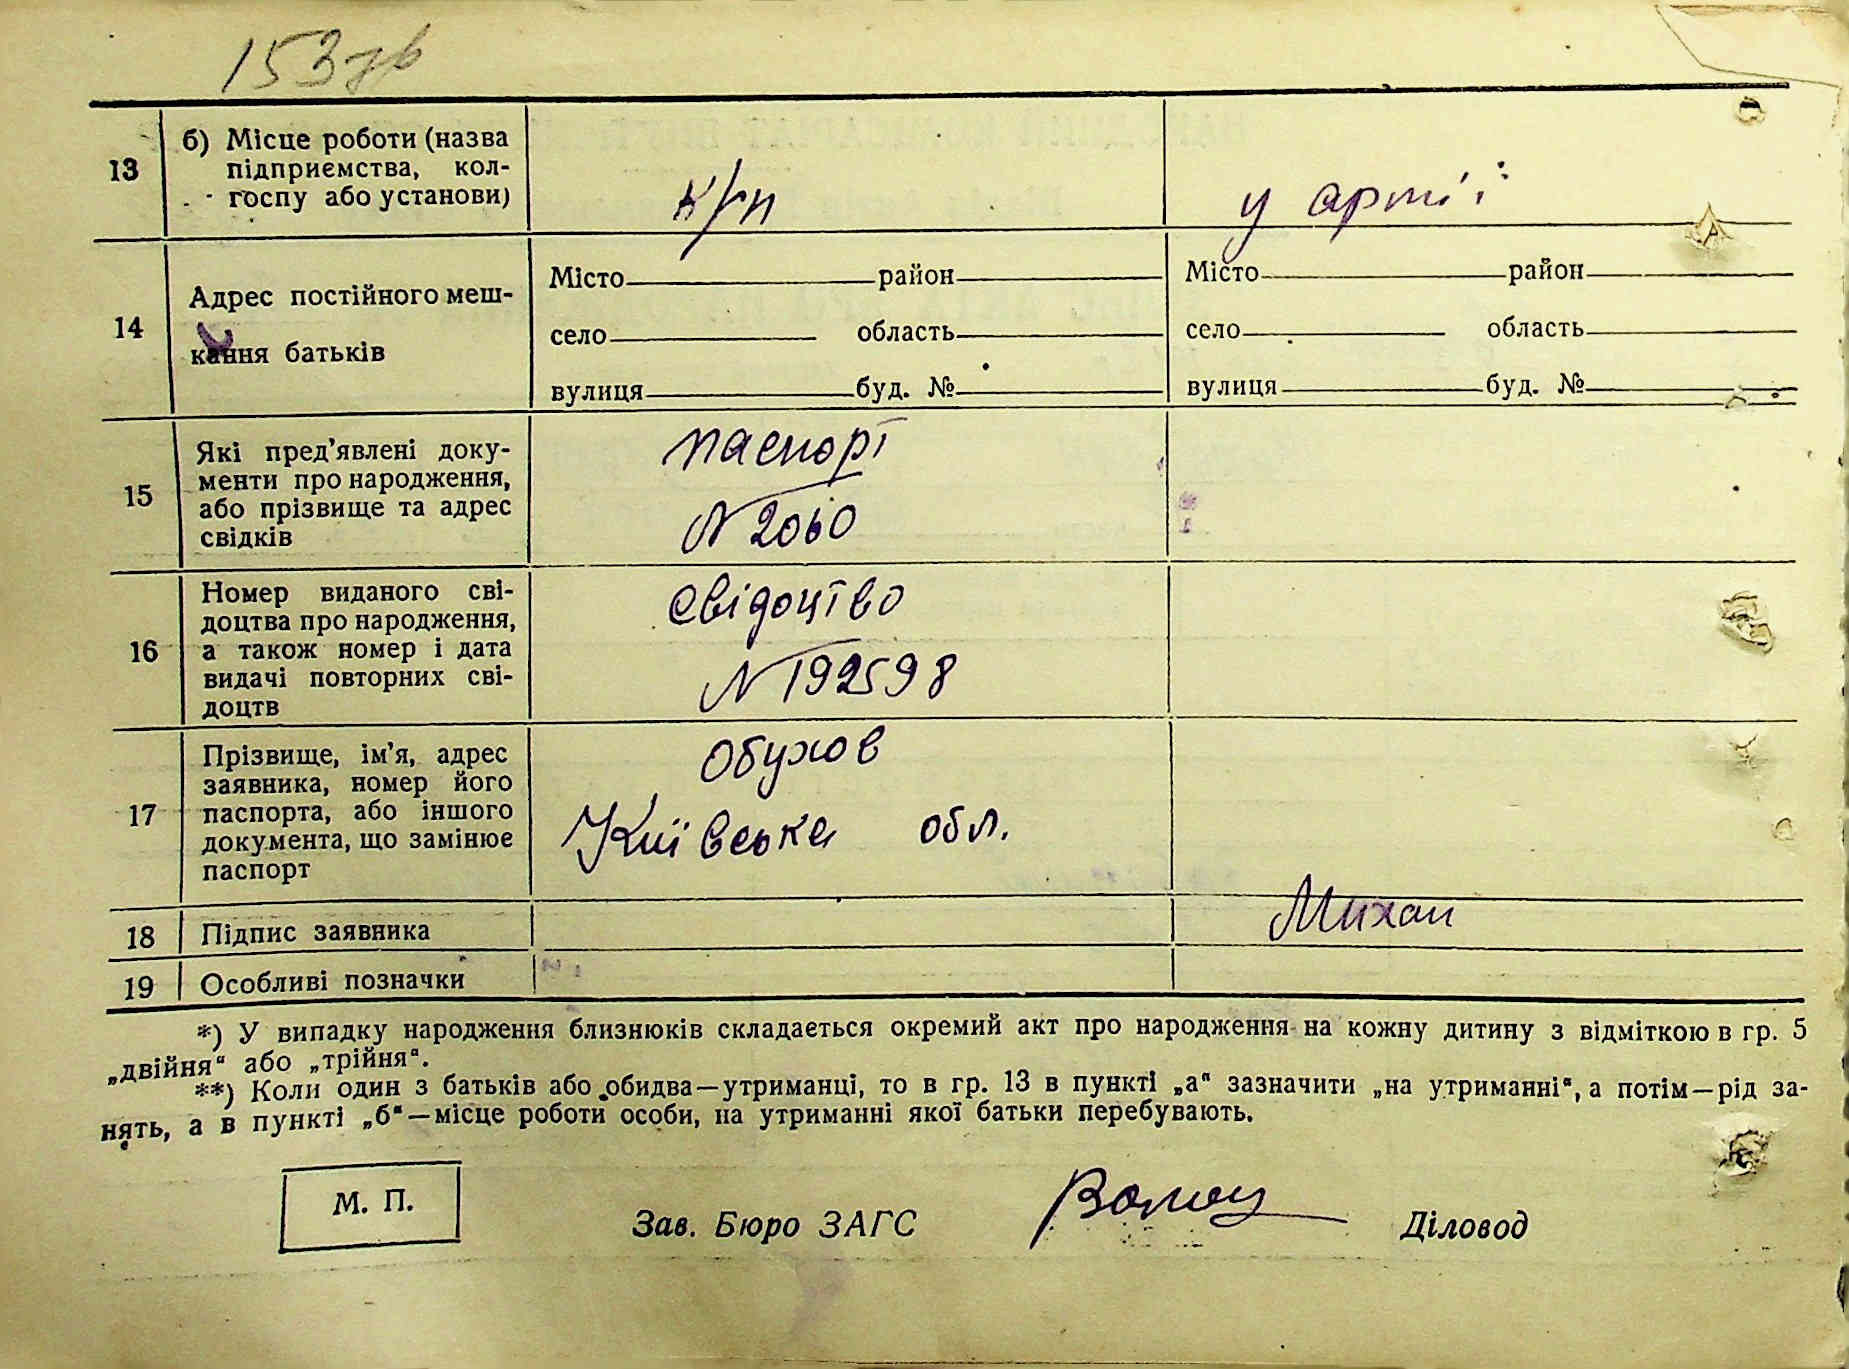 153зв
13
б) Місце роботи (назва
підприємства, кол-
госпу або установи)
к/гп
у армії
14
Адрес постійного меш-
кання батьків
Місто район
село область
вулиця буд. №
Місто район
село область
вулиця буд. №
15
Які пред'явлені доку-
менти про народження,
або прізвище та адрес
свідків
паспорт
N 2060
16
Номер виданого сві-
доцтва про народження,
а також номер і дата
видачі повторних сві-
доцтв
свідоцтво
N 192598
17
Прізвище, ім'я, адрес
заявника, номер його
паспорта, або іншого
документа, що замінює
паспорт
Обухов
Київська обл.
18
Підпис заявника
Михай
19
Особливі позначки
*) У випадку народження близнюків складається окремий акт про народження на кожну дитину з відміткою в гр. 5
„двійня“ або „трійня“.
**) Коли один з батьків або обидва—утриманці, то в гр. 13 в пункті „а“ зазначити „на утриманні“, а потім—рід за-
нять, а в пункті „б“—місце роботи особи, на утриманні якої батьки перебувають.
М. П.
Зав. Бюро ЗАГС
Діловод